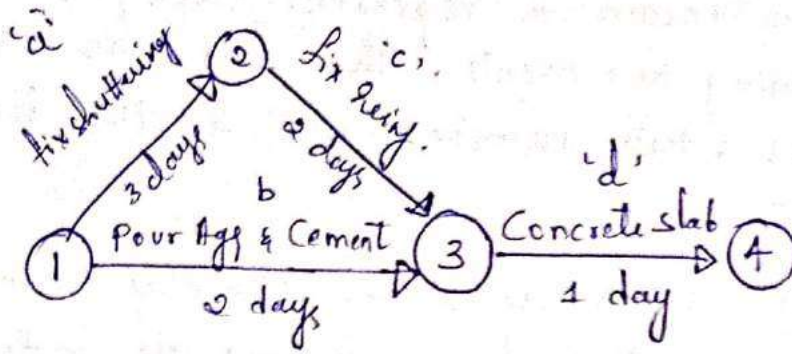 'a'
fix shuttering
3 days
2
'c'.
fix reinf.
2 days
b
Pour Agg & Cement
2 days
1
3
'd'
Concrete slab
1 day
4